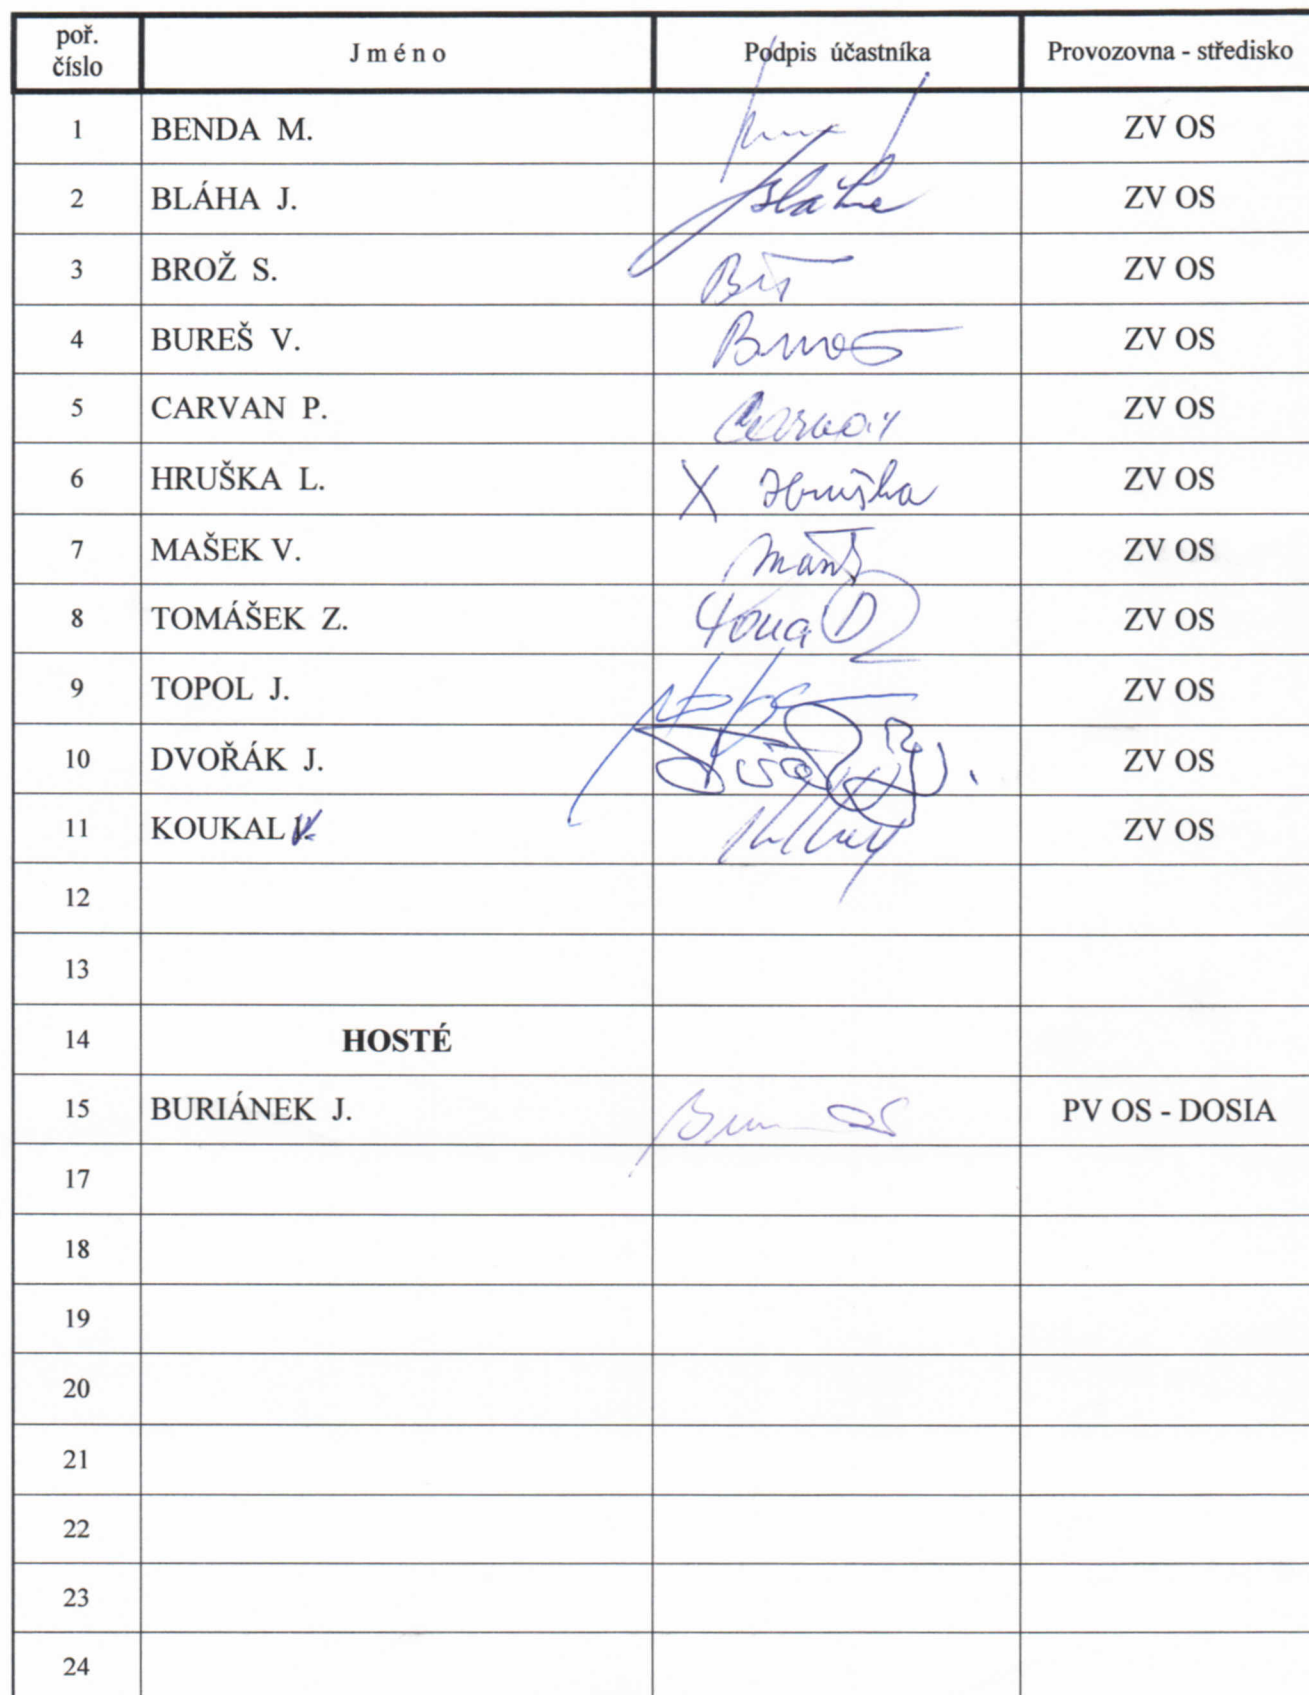 poř. číslo J m é n o Podpis účastníka Provozovna - středisko
1 BENDA M. ZV OS
2 BLÁHA J. Bláha ZV OS
3 BROŽ S. ZV OS
4 BUREŠ V. ZV OS
5 CARVAN P. ZV OS
6 HRUŠKA L. X Hruška ZV OS
7 MAŠEK V. ZV OS
8 TOMÁŠEK Z. ZV OS
9 TOPOL J. ZV OS
10 DVOŘÁK J. ZV OS
11 KOUKAL V. ZV OS
12
13
14 HOSTÉ
15 BURIÁNEK J. PV OS - DOSIA
17
18
19
20
21
22
23
24